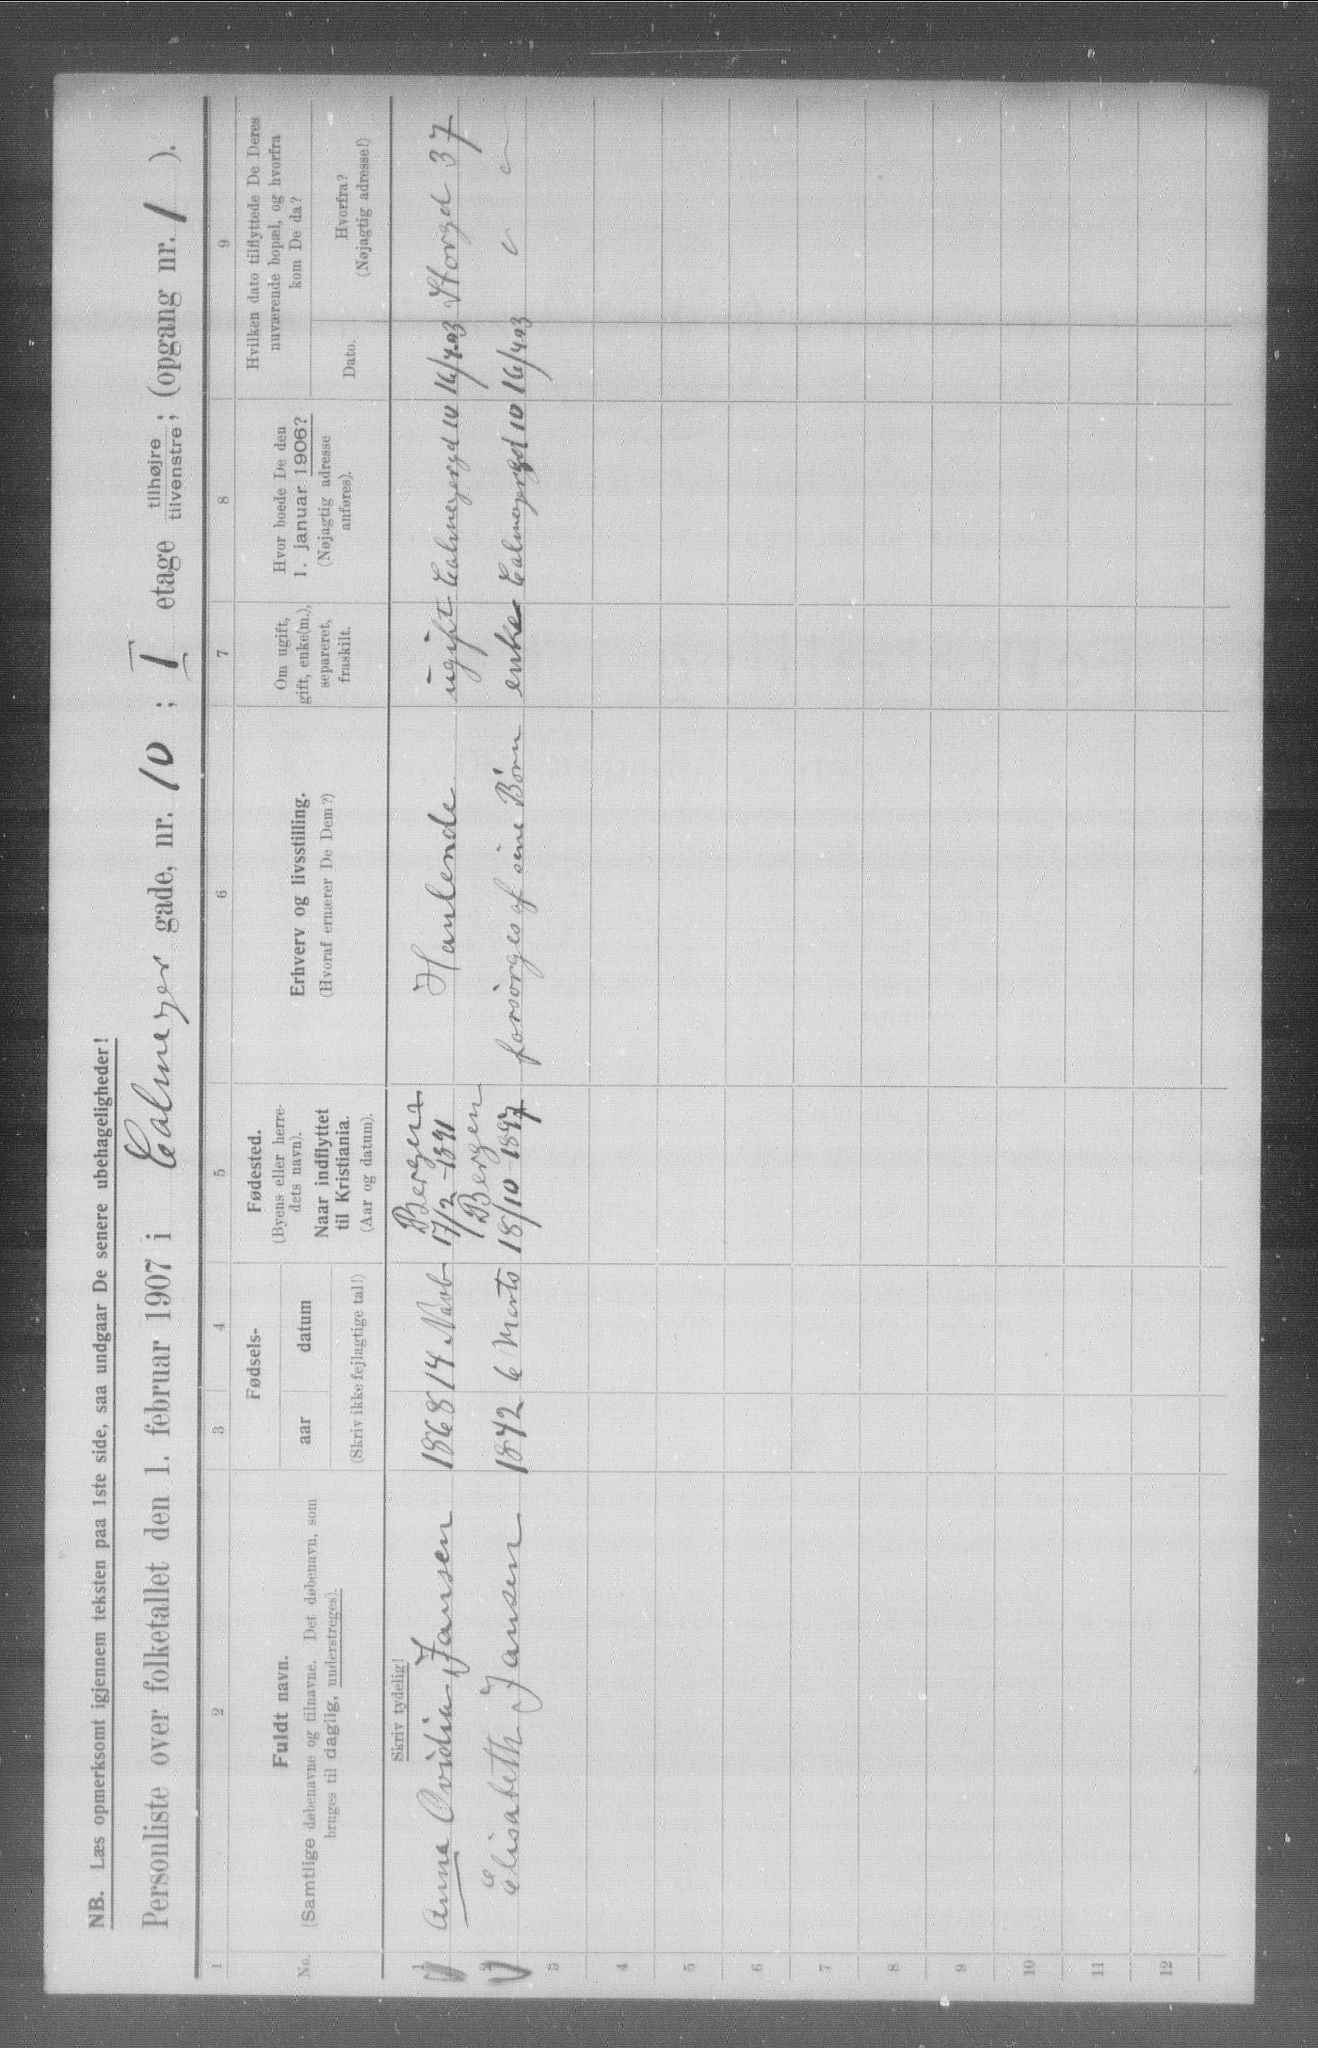 NB. Læs opmerksomt igjennem teksten paa 1ste side, saa undgaar De senere ubehageligheder!
Personliste over folketallet den 1. februar 1907 i Calmeyer gade, nr. 10 ; I etage tilhøjre tilvenstre ; (opgang nr. 1 ).
1 2 3 4 5 6 7 8 9
No.
Fuldt navn.
(Samtlige døbenavne og tilnavne. Det døbenavn, som
bruges til daglig, understreges).
Fødsels-
aar datum
(Skriv ikke fejlagtige tal!)
Fødested.
(Byens eller herre-
dets navn).
Naar indflyttet
til Kristiania.
(Aar og datum).
Erhverv og livsstilling.
(Hvoraf ernærer De Dem?)
Om ugift,
gift, enke(m.),
separeret,
fraskilt.
Hvor boede De den
1. januar 1906?
(Nøjagtig adresse
anføres).
Hvilken dato tilflyttede De Deres
nuværende bopæl, og hvorfra
kom De da?
Dato.
Hvorfra?
(Nøjagtig adresse!)
Skriv tydelig!
1 Anna Ovidia Jansen 1868 14 Novb Bergen 17/2 - 1891 Hanlende ugift Calmeyergd 10 16/4 03 Storgd 37
2 Elisabeth Jansen 1842 6 Marts Bergen 18/10 - 1897 forsørges af sine Børn enke Calmeyergd 10 16/4 03 " "
3
4
5
6
7
8
9
10
11
12